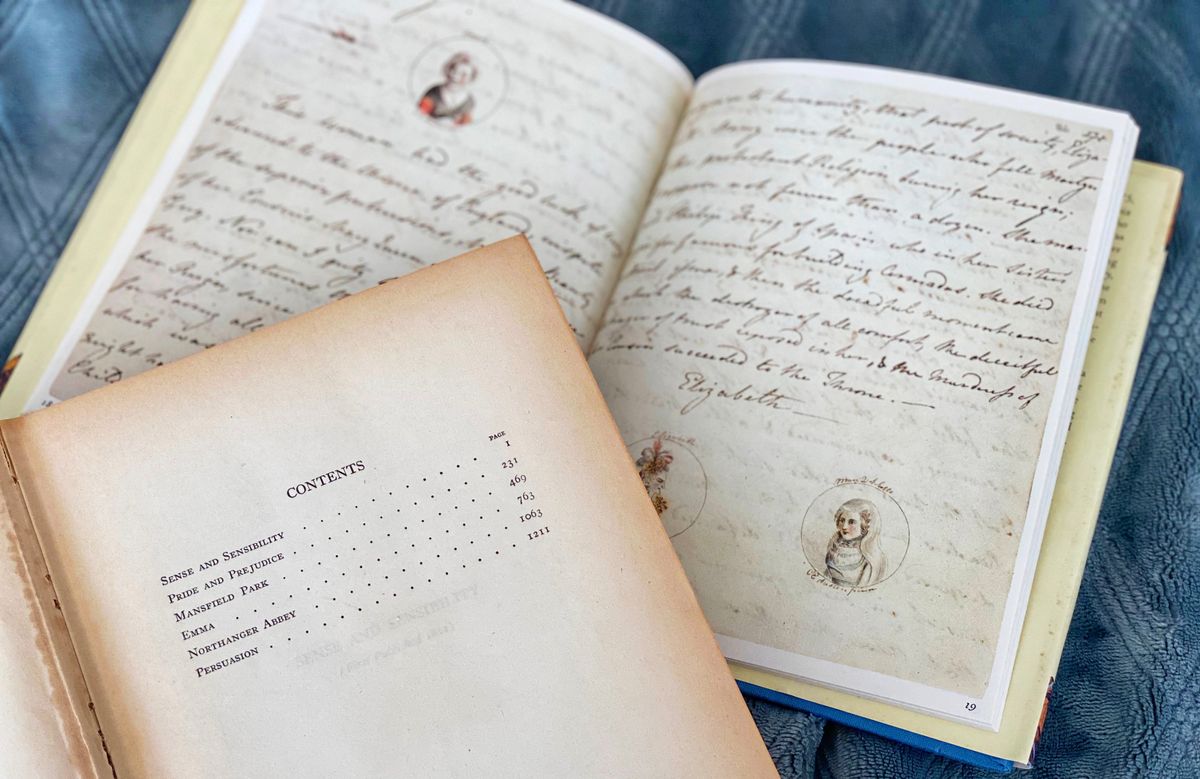 This woman had the good luck of
advanced to the throne of England, inspite
of the superior pretensions,
of her Cousins Mary Queen
Grey. Nor can I pity
the misfortunes
her Reign, since
for having all
which was
might ha
Child
18
to humanity, that pest of society, Eliza-
Many were the people who fell Martyrs
the Protestant Religion during her reign;
suppose not fewer than a dozen. She mar-
Philip King of Spain who in her Sister's
famous for building Armadas. She died
& then the dreadful moment came
which the destroyer of all comfort, the deceitful
of trust reposed in her, & the Murderess of
Cousin succeeded to the Throne.—
Elizabeth—
19
CONTENTS
PAGE
SENSE AND SENSIBILITY . . . . . . . . 1
PRIDE AND PREJUDICE . . . . . . . . 231
MANSFIELD PARK . . . . . . . . . 469
EMMA . . . . . . . . . . . 763
NORTHANGER ABBEY . . . . . . . . 1063
PERSUASION . . . . . . . . . . 1211